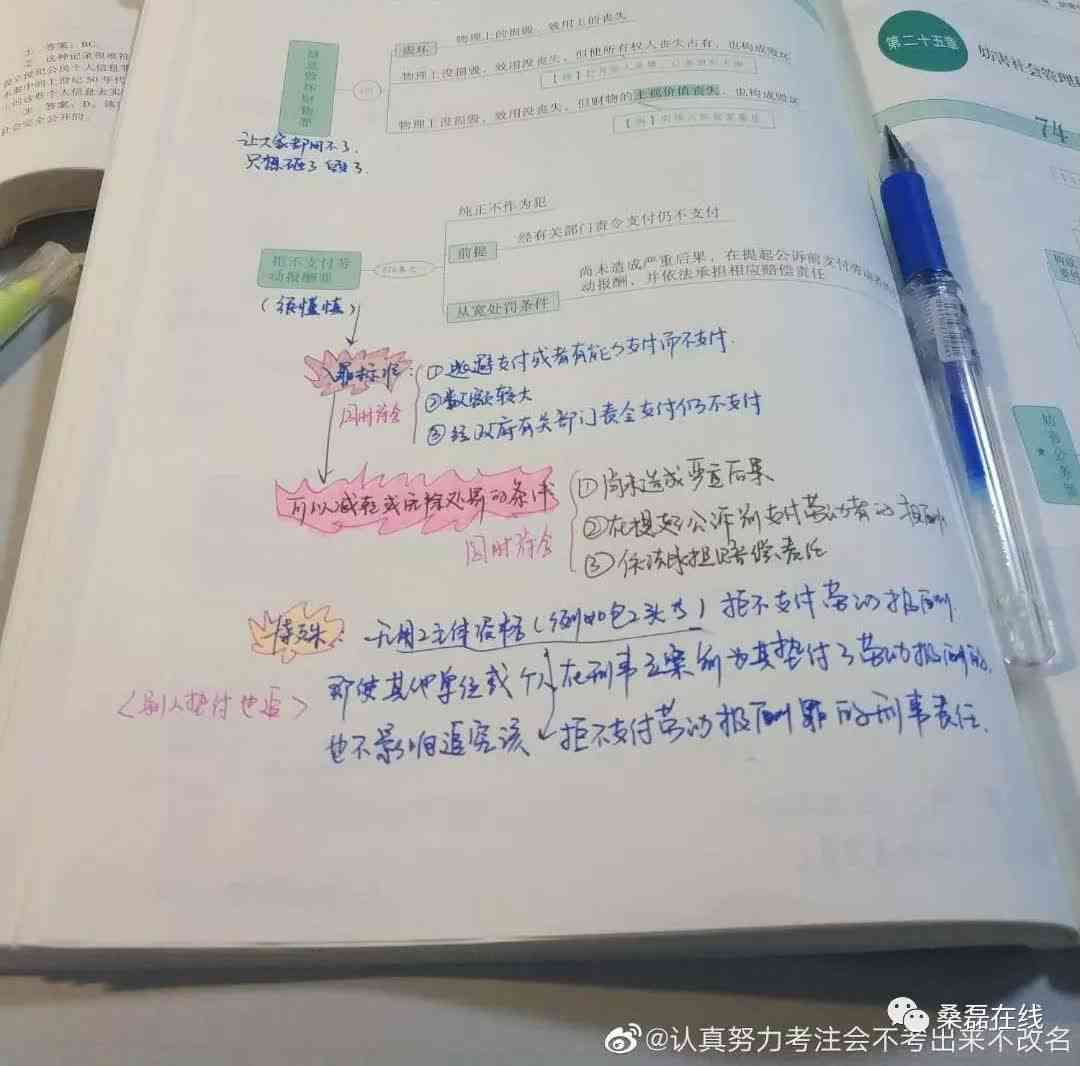 1. 答案：BC。
2. 这种记录很难符
提交侵犯公民个人信息罪
不案中的上世纪50年代
3. 答案：D。
社会完全公开的
故意毁坏财物罪
毁坏
物理上的损毁，效用上的丧失
物理上没损毁，效用没丧失，但使所有权人丧失占有，也构成毁坏
物理上没损毁，效用没丧失，但财物的主观价值丧失，也构成毁坏
让大家都用不了，
只想砸了毁了
纯正不作为犯
拒不支付劳动报酬罪
前提
经有关部门责令支付仍不支付
从宽处罚条件
尚未造成严重后果，在提起公诉前支付劳动
动报酬，并依法承担相应赔偿责任
（很谨慎）
入罪标准：
同时符合
①逃避支付或者有能力支付而不支付.
②数额较大
③经政府有关部门责令支付仍不支付
可以减轻或免除处罚的条件
同时符合
①尚未造成严重后果
②在提起公诉前支付劳动者的报酬
③依法承担赔偿责任
特殊：无用工主体资格（例如包工头等）拒不支付劳动报酬
即使其他单位或个人在刑事立案前为其垫付了劳动报酬的,
<别人垫付也追>
也不影响追究该拒不支付劳动报酬罪的刑事责任.
第二十五章
妨害社会管理
74
妨害公务罪
桑磊在线
@认真努力考注会不考出来不改名